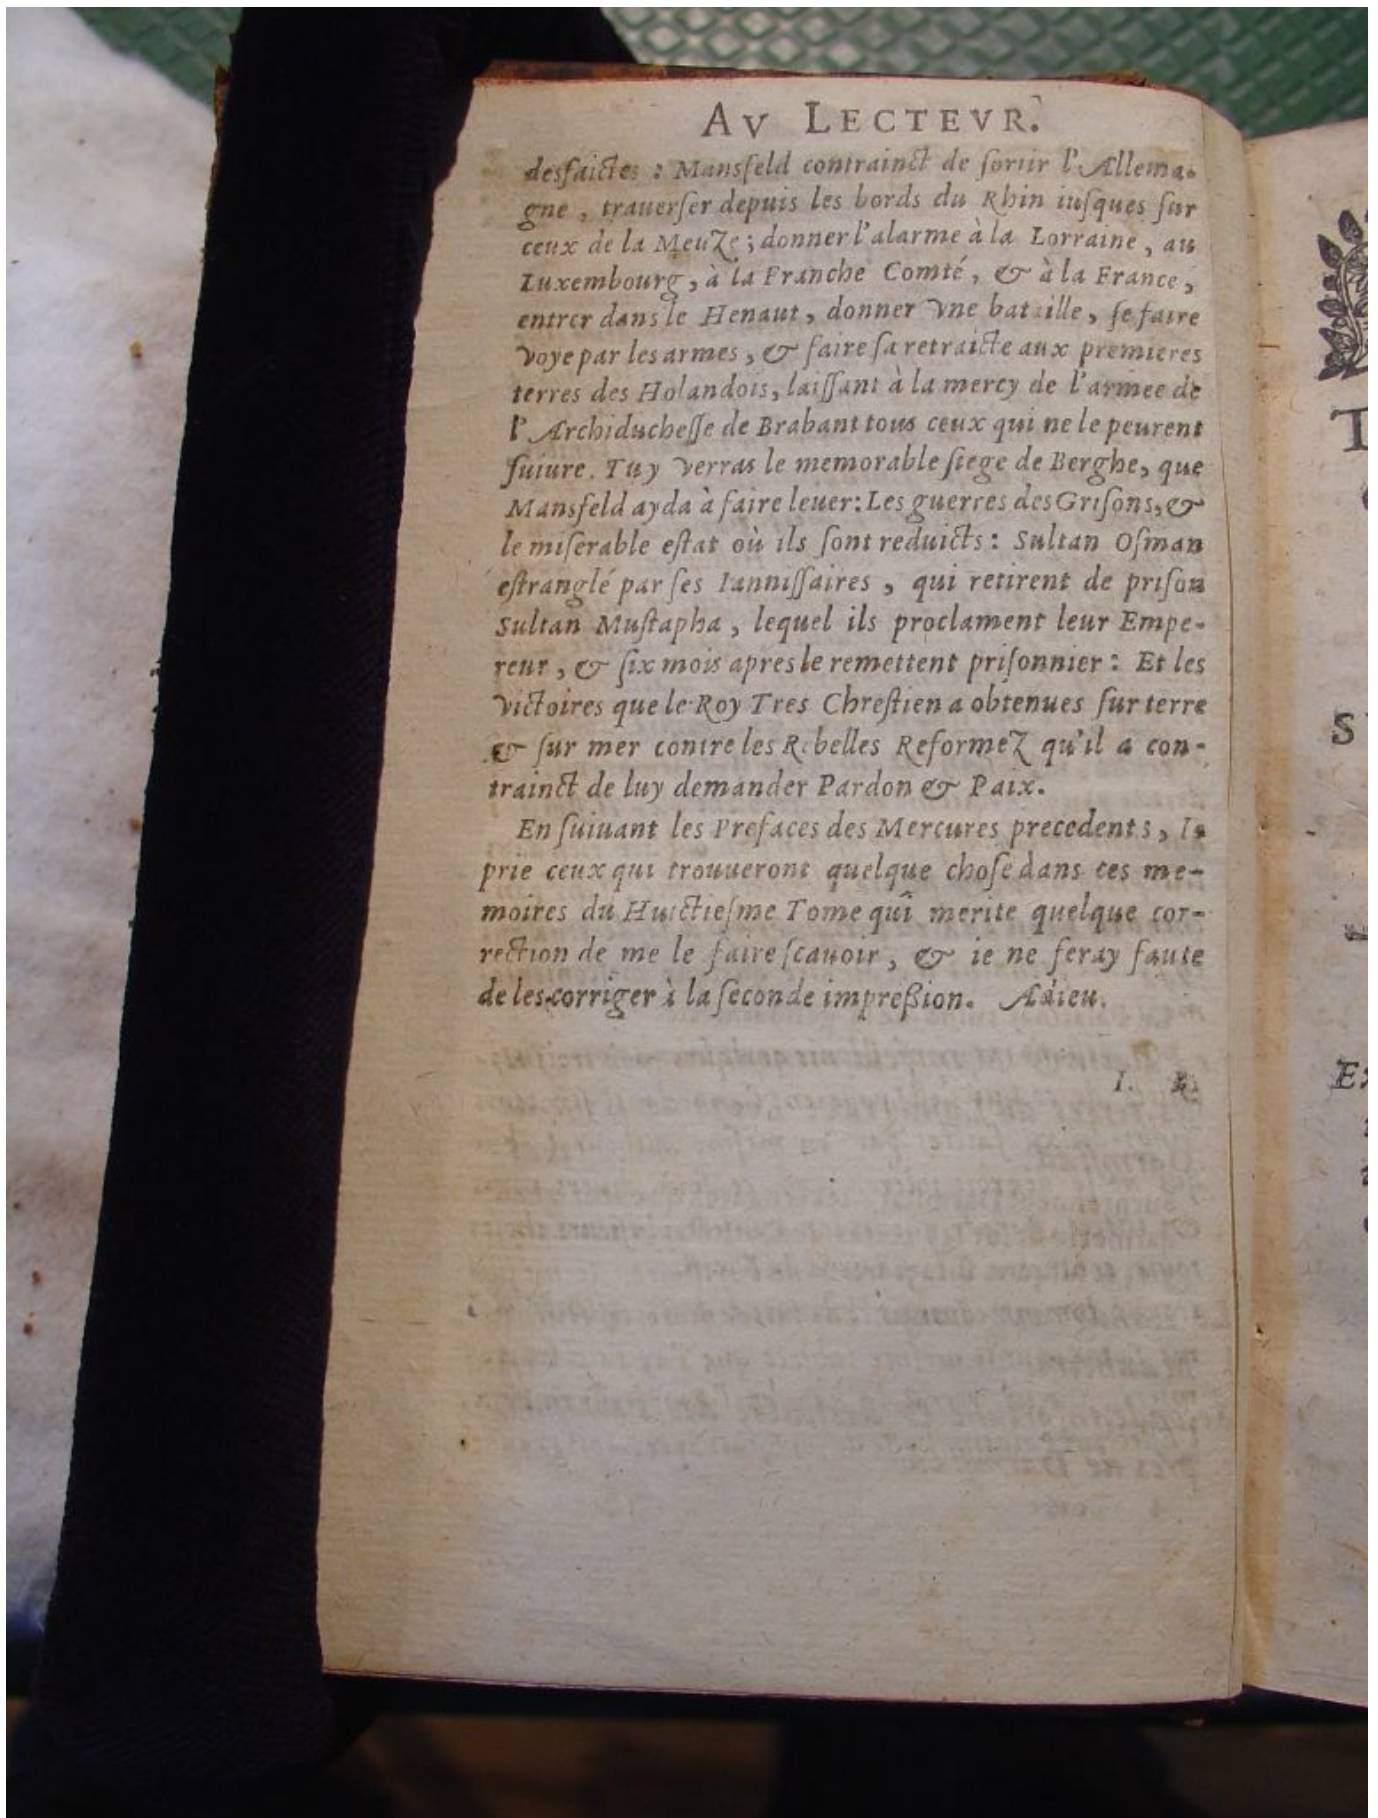 AV LECTEVR.
desfaictes : Mansfeld contrainct de sortir l'Allema-
gne, trauerser depuis les bords du Rhin iusques sur
ceux de la Meuze ; donner l'alarme à la Lorraine, au
Luxembourg, à la Franche Comté, & à la France,
entrer dans le Henaut, donner vne bataille, se faire
voye par les armes, & faire sa retraicte aux premieres
terres des Holandois, laissant à la mercy de l'armee de
l'Archiduchesse de Brabant tous ceux qui ne le peurent
suiure. Tu y verras le memorable siege de Berghe, que
Mansfeld ayda à faire leuer: Les guerres des Grisons, &
le miserable estat où ils sont reduicts : Sultan Osman
estranglé par ses Iannissaires, qui retirent de prison
Sultan Mustapha, lequel ils proclament leur Empe-
reur, & six mois apres le remettent prisonnier : Et les
victoires que le Roy Tres Chrestien a obtenues sur terre
& sur mer contre les Rebelles Reformez qu'il a con-
trainct de luy demander Pardon & Paix.
En suiuant les Prefaces des Mercures precedents, Ie
prie ceux qui trouueront quelque chose dans ces me-
moires du Huictiesme Tome qui merite quelque cor-
rection de me le faire scauoir, & ie ne feray faute
de les corriger à la seconde impression. Adieu.
I. R.
T
S